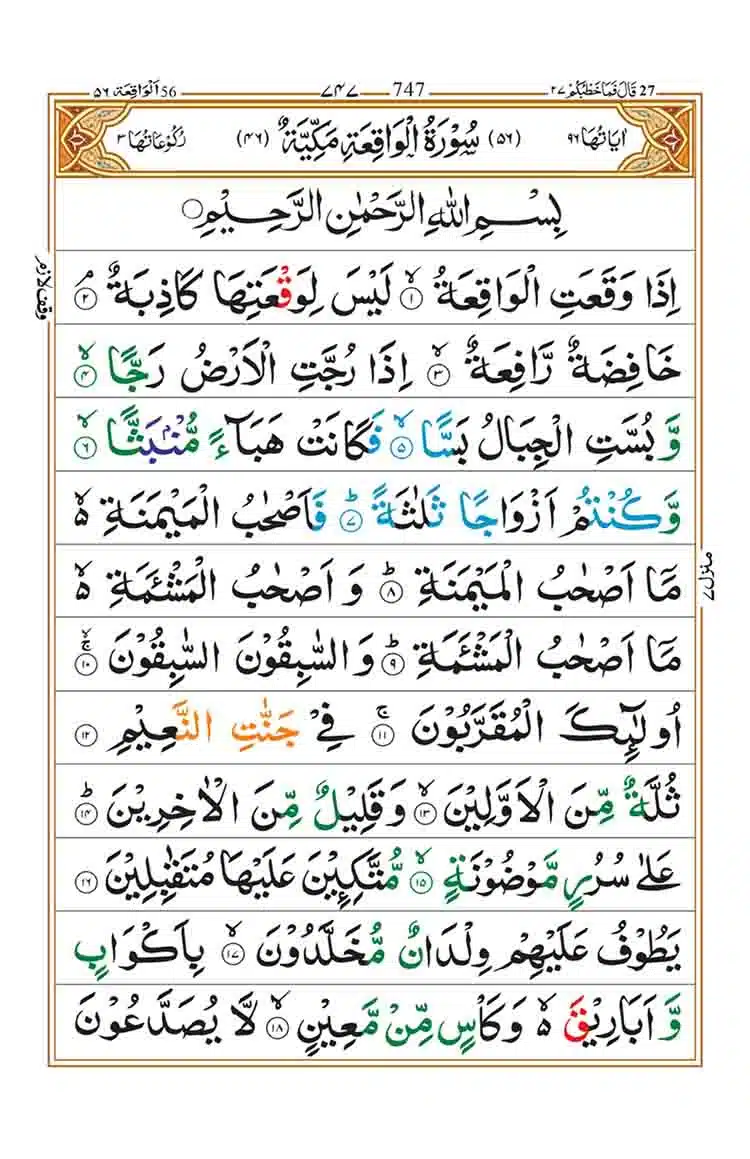 27 قَالَ فَمَا خَطْبُكُمْ ٢٧ — 747 — ٧٤٧ — 56 اَلْوَاقِعَة ٥٦
اٰيَاتُهَا ٩٦ (٥٦) سُوْرَةُ الْوَاقِعَةِ مَكِّيَّةٌ (٤٦) رُكُوْعَاتُهَا ٣
بِسْمِ اللهِ الرَّحْمٰنِ الرَّحِيْمِ ○
اِذَا وَقَعَتِ الْوَاقِعَةُ ۙ‏﴿١﴾ لَيْسَ لِوَقْعَتِهَا كَاذِبَةٌ ۘ‏﴿٢﴾
وقف لازم
خَافِضَةٌ رَّافِعَةٌ ۙ‏﴿٣﴾ اِذَا رُجَّتِ الْاَرْضُ رَجًّا ۙ‏﴿٤﴾
وَّ بُسَّتِ الْجِبَالُ بَسًّا ۙ‏﴿٥﴾ فَكَانَتْ هَبَآءً مُّنْۢبَثًّا ۙ‏﴿٦﴾
وَّكُنْتُمْ اَزْوَاجًا ثَلٰثَةً ؕ‏﴿٧﴾ فَاَصْحٰبُ الْمَيْمَنَةِ ۙ۬
مَاۤ اَصْحٰبُ الْمَيْمَنَةِ ؕ‏﴿٨﴾ وَ اَصْحٰبُ الْمَشْـَٔمَةِ ۙ۬
منزل ٧
مَاۤ اَصْحٰبُ الْمَشْـَٔمَةِ ؕ‏﴿٩﴾ وَ السّٰبِقُوْنَ السّٰبِقُوْنَ ۚۙ‏﴿١٠﴾
اُولٰٓئِكَ الْمُقَرَّبُوْنَ ۚ‏﴿١١﴾ فِيْ جَنّٰتِ النَّعِيْمِ ﴿١٢﴾
ثُلَّةٌ مِّنَ الْاَوَّلِيْنَ ۙ‏﴿١٣﴾ وَقَلِيْلٌ مِّنَ الْاٰخِرِيْنَ ؕ‏﴿١٤﴾
عَلٰى سُرُرٍ مَّوْضُوْنَةٍ ۙ‏﴿١٥﴾ مُّتَّكِـِٕيْنَ عَلَيْهَا مُتَقٰبِلِيْنَ ﴿١٦﴾
يَطُوْفُ عَلَيْهِمْ وِلْدَانٌ مُّخَلَّدُوْنَ ۙ‏﴿١٧﴾ بِاَكْوَابٍ
وَّ اَبَارِيْقَ ۙ۬ وَكَاْسٍ مِّنْ مَّعِيْنٍ ۙ‏﴿١٨﴾ لَّا يُصَدَّعُوْنَ